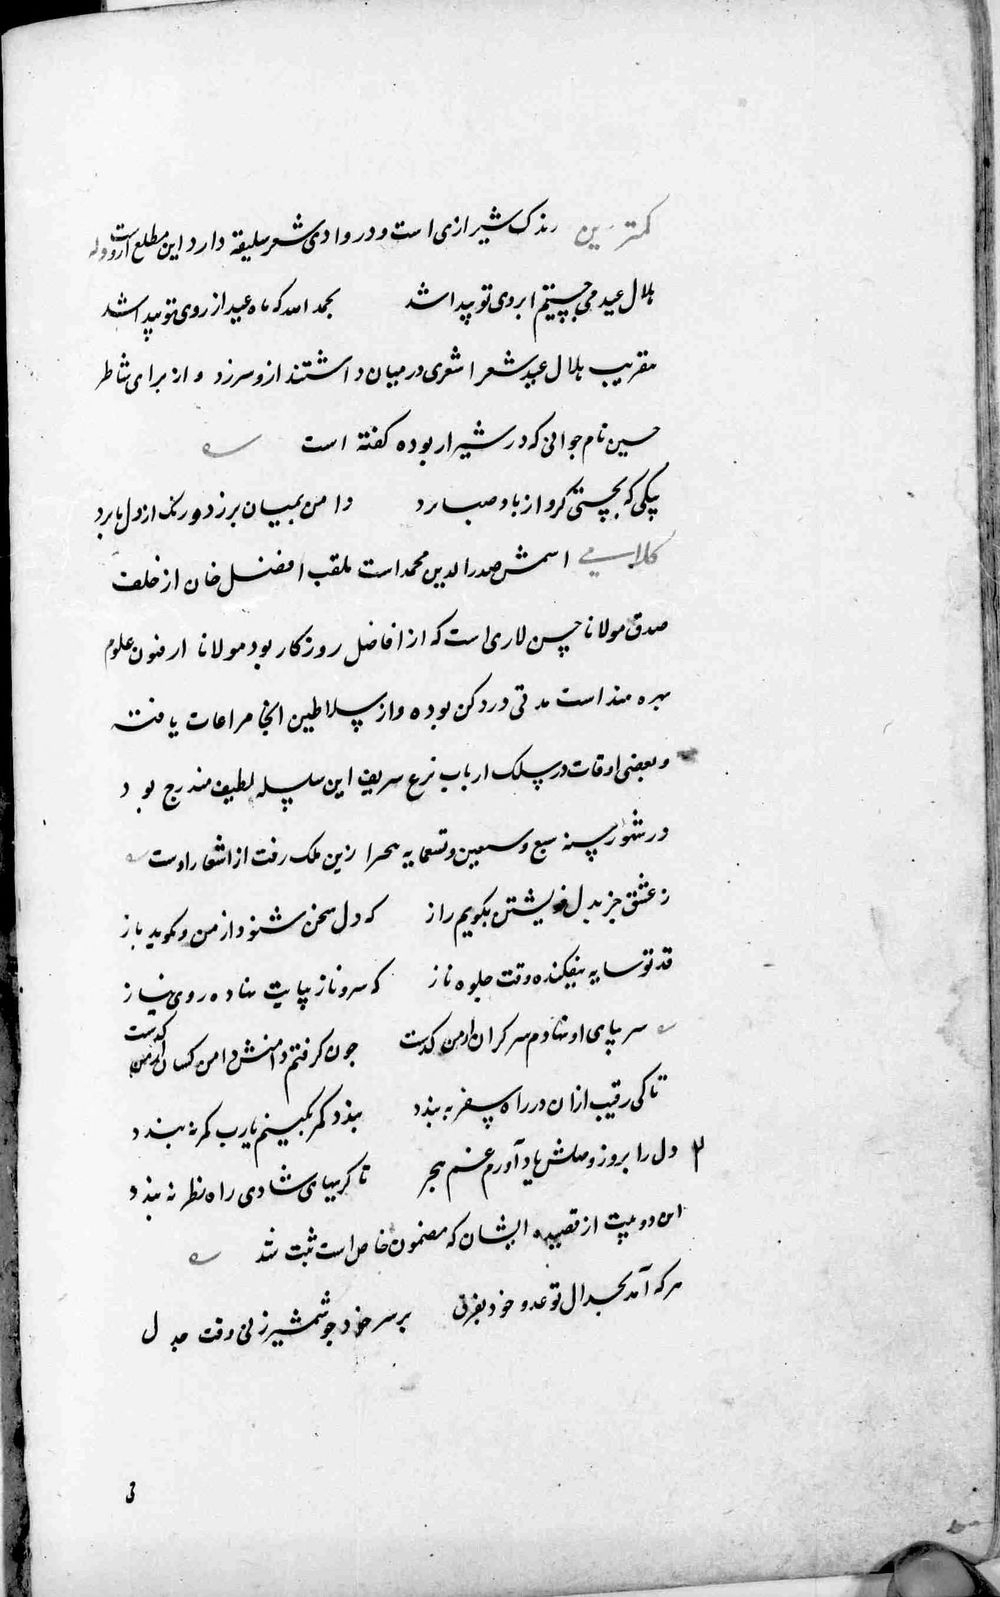 کمترین رندک شیرازی است و در وادی شعر سلیقه دارد این مطلع ازوست وله
هلال عید می جستیم ابروی تو پیدا شد بحمد الله که ماه عید از روی تو پیدا شد
بتقریب هلال عید شعرا شعری در میان داشتند ازو سر زد و از برای شاطر
حسین نام جوانی که در شیراز بوده کفته است
پیکی که بچستی کرو از باد صبا برد دامن بمیان بر زد و رنک از دل ما برد
کلامی اسمش صدر الدین محمد است ملقب افضل خان از خلف
صدق مولانا حسن لاری است که از افاضل روزکار بود مولانا از فنون علوم
بهره مند است مدتی در دکن بوده و از سلاطین انجا مراعات یافته
و بعضی اوقات در سلک ارباب این سلسله لطیف مندرج بود
در شهور سنه سبع و سبعین و تسعمایه ازین ملک رفت از اشعار اوست
ز عشق جز بدل خویشتن نکویم راز که دل سخن شنود از من و نکوید باز
قد تو سایه بیفکنده وقت جلوه ناز که سرو ناز بپایت نهاده روی نیاز
سر بپای او نهادم سر کران از من کذشت چون کرفتم دامنش دامن کشان از من کذشت
تا کی رقیب ازان در راه سفر نه بندد بندد کمر بکینم یارب کمر نه بندد
۲ دل را بروز وصلش یاد آورم غم هجر تا کریهای شادی راه نظر نه بندد
این دو بیت از قصیده ایشان که مضمون خاص است ثبت شد
هر که آمد بجدال تو عدو خود بغرق بر سر خود چو شمشیر زنی وقت جدل